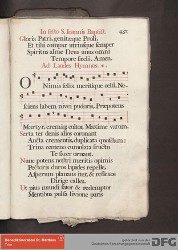 In festo S. Joannis Baptistæ. 447
Gloria Patri, genitæque Proli,
Et tibi compar utriusque semper
Spiritus alme Deus unus omni
Tempore sæcli. Amen.
Ad Laudes Hymnus.
O Nimis felix meritique celsi, Ne-
sciens labem nivei pudoris, Præpotens
Martyr, eremique cultor, Maxime vatum.
Serta ter denis alios coronant
Aucta crementis, duplicata quosdam:
Trina centeno cumulata fructu
Te sacer ornant.
Nunc potens nostri meritis opimis
Pectoris duros lapides repelle,
Asperum planans iter, &amp; reflexos
Dirige calles.
Ut pius mundi sator &amp; redemptor
Mentibus pulsa livione puris
DFG